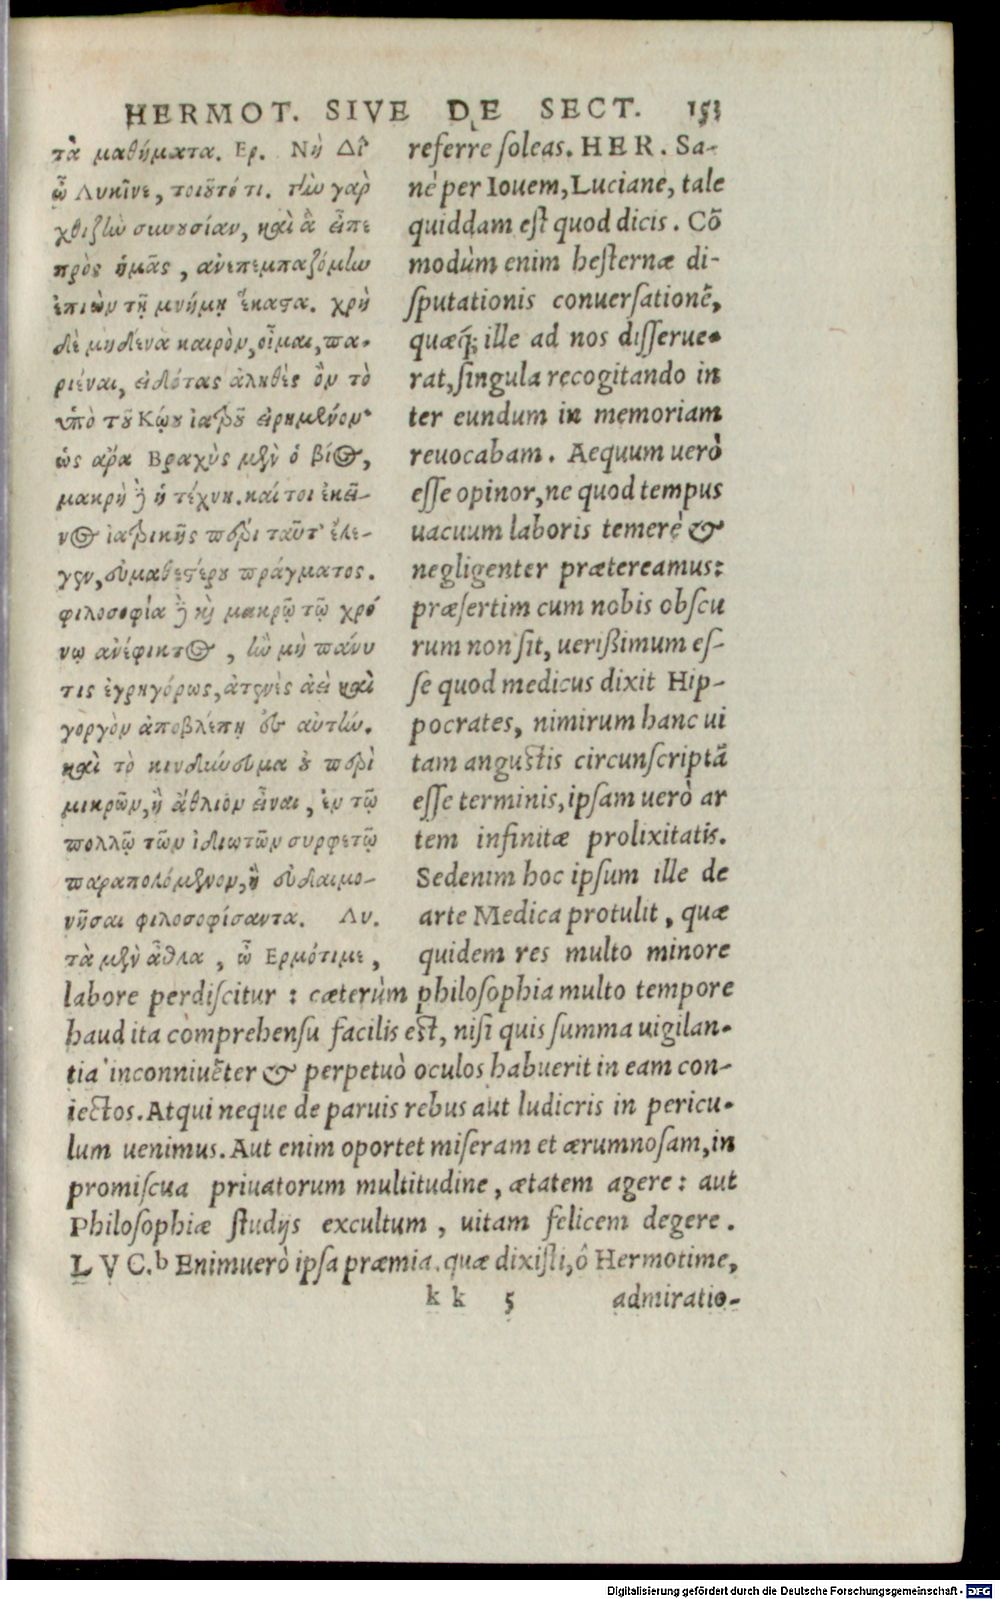 HERMOT. SIVE DE SECT. 153
τὰ μαθήματα. Ερ. Νὴ Δί'
ὦ Λυκῖνε, τοιοῦτό τι. τὴν γὰρ
χθιζὴν συνουσίαν, καὶ ἃ εἶπε
πρὸς ἡμᾶς, ἀνεπεμπαζόμην
ἐπιὼν τῇ μνήμῃ ἕκαστα. χρὴ
δὲ μηδένα καιρὸν, οἶμαι, πα-
ριέναι, εἰδότας ἀληθὲς ὂν τὸ
ὑπὸ τοῦ Κῴου ἰατροῦ εἰρημένον·
ὡς ἄρα Βραχὺς μὲν ὁ βίος,
μακρὴ δὲ ἡ τέχνη. καί τοι ἐκεῖ-
νος ἰατρικῆς περὶ ταῦτ' ἔλε-
γεν, εὐμαθεστέρου πράγματος.
φιλοσοφία δὲ καὶ μακρῷ τῷ χρό
νῳ ἀνέφικτος, ἢν μὴ πάνυ
τις ἐγρηγόρως, ἀτενὲς ἀεὶ καὶ
γοργὸν ἀποβλέπῃ ἐς αὐτήν.
καὶ τὸ κινδύνευμα οὐ περὶ
μικρῶν, ἢ ἄθλιον εἶναι, ἐν τῷ
πολλῷ τῶν ἰδιωτῶν συρφετῷ
παραπολόμενον, ἢ εὐδαιμο-
νῆσαι φιλοσοφίσαντα. Λυ.
τὰ μὲν ἆθλα, ὦ Ερμότιμε,
referre soleas. HER. Sa-
nè per Iouem, Luciane, tale
quiddam est quod dicis. Cō
modùm enim hesternæ di-
sputationis conuersationē,
quæq́; ille ad nos disserue-
rat, singula recogitando in
ter eundum in memoriam
reuocabam. Aequum uerò
esse opinor, ne quod tempus
uacuum laboris temerè &
negligenter prætereamus:
præsertim cum nobis obscu
rum non sit, uerißimum es-
se quod medicus dixit Hip-
pocrates, nimirum hanc ui
tam angustis circunscriptā
esse terminis, ipsam uerò ar
tem infinitæ prolixitatis.
Sedenim hoc ipsum ille de
arte Medica protulit, quæ
quidem res multo minore
labore perdiscitur : cæterùm philosophia multo tempore
haud ita còmprehensu facilis est, nisi quis summa uigilan-
tia inconniuēter & perpetuò oculos habuerit in eam con-
iectos. Atqui neque de paruis rebus aut ludicris in pericu-
lum uenimus. Aut enim oportet miseram et ærumnosam, in
promiscua priuatorum multitudine, ætatem agere: aut
Philosophiæ studijs excultum, uitam felicem degere.
LVC.b Enimuerò ipsa præmia. quæ dixisti, ô Hermotime,
kk 5 admiratio-
Digitalisierung gefördert durch die Deutsche Forschungsgemeinschaft - DFG